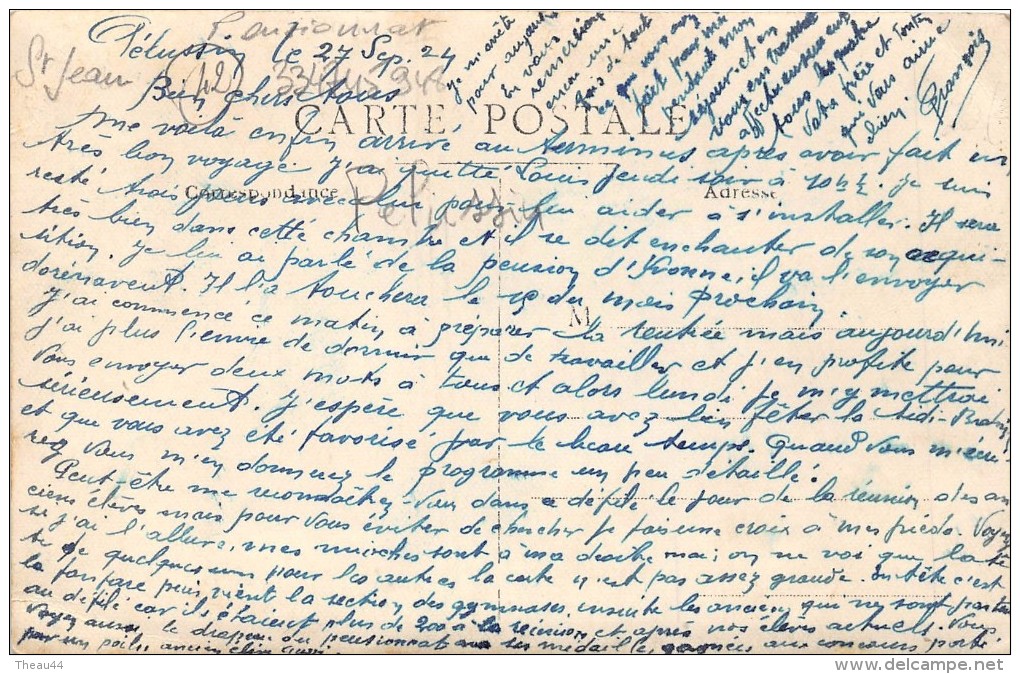 Pensionnat
St Jean
(42)
Pélussin le 27 Sep. 24
Bien chers tous
CARTE POSTALE
Correspondance
Adresse
Pelussin
M
me voilà enfin arrivé au terminus après avoir fait un
très bon voyage. J'ai quitté Louis jeudi soir à 10h½. Je suis
resté trois jours avec lui pour lui aider à s'installer. Il sera
très bien dans cette chambre et il se dit enchanter de son acqui-
sition. Je lui ai parlé de la pension d'Yvonne, il va l'envoyer
dorénavent. Il l'a touchera le 10 du mois prochain.
J'ai commencé ce matin à préparer la rentrée mais aujourd'hui
j'ai plus l'envie de dormir que de travailler et j'en profite pour
vous envoyer deux mots à tous et alors lundi je m'y mettrai
sérieusement. J'espère que vous avez bien fêter la
et que vous avez été favorisé par le beau temps. Quand vous m'écri-
rez vous m'en donnerez le programme un peu détaillé.
Peut-être me reconnaîtrez-vous dans ce défilé le jour de la réunion des an
ciens élèves mais pour vous éviter de chercher je fais une croix à mes pieds. Voyez
si j'ai l'allure, mes sont à ma droite mais on ne voi que la tê
te de quelques uns pour les autres la carte n'est pas assez grande. En tête c'est
la fanfare puis vient la section des gymnases, ensuite les anciens qui ne sont pas tous
au défilé car ils étaient plus de 200 à la réunion et après nos élèves actuels. Vous
voyez aussi le drapeau du pensionnat avec ses médailles gagnées aux concours porté
par un poilu ancien élève aussi.
Je m'arrête
pour aujourd'hui
En vous
remerciant
encore une
fois de tout
ce que vous avez
fait pour moi
pendant mon
séjour et en
vous embrassant
affectueusement
tous les quatre
Votre frère et Tonton
qui vous aime
bien
François
Theau44
delcampe.net